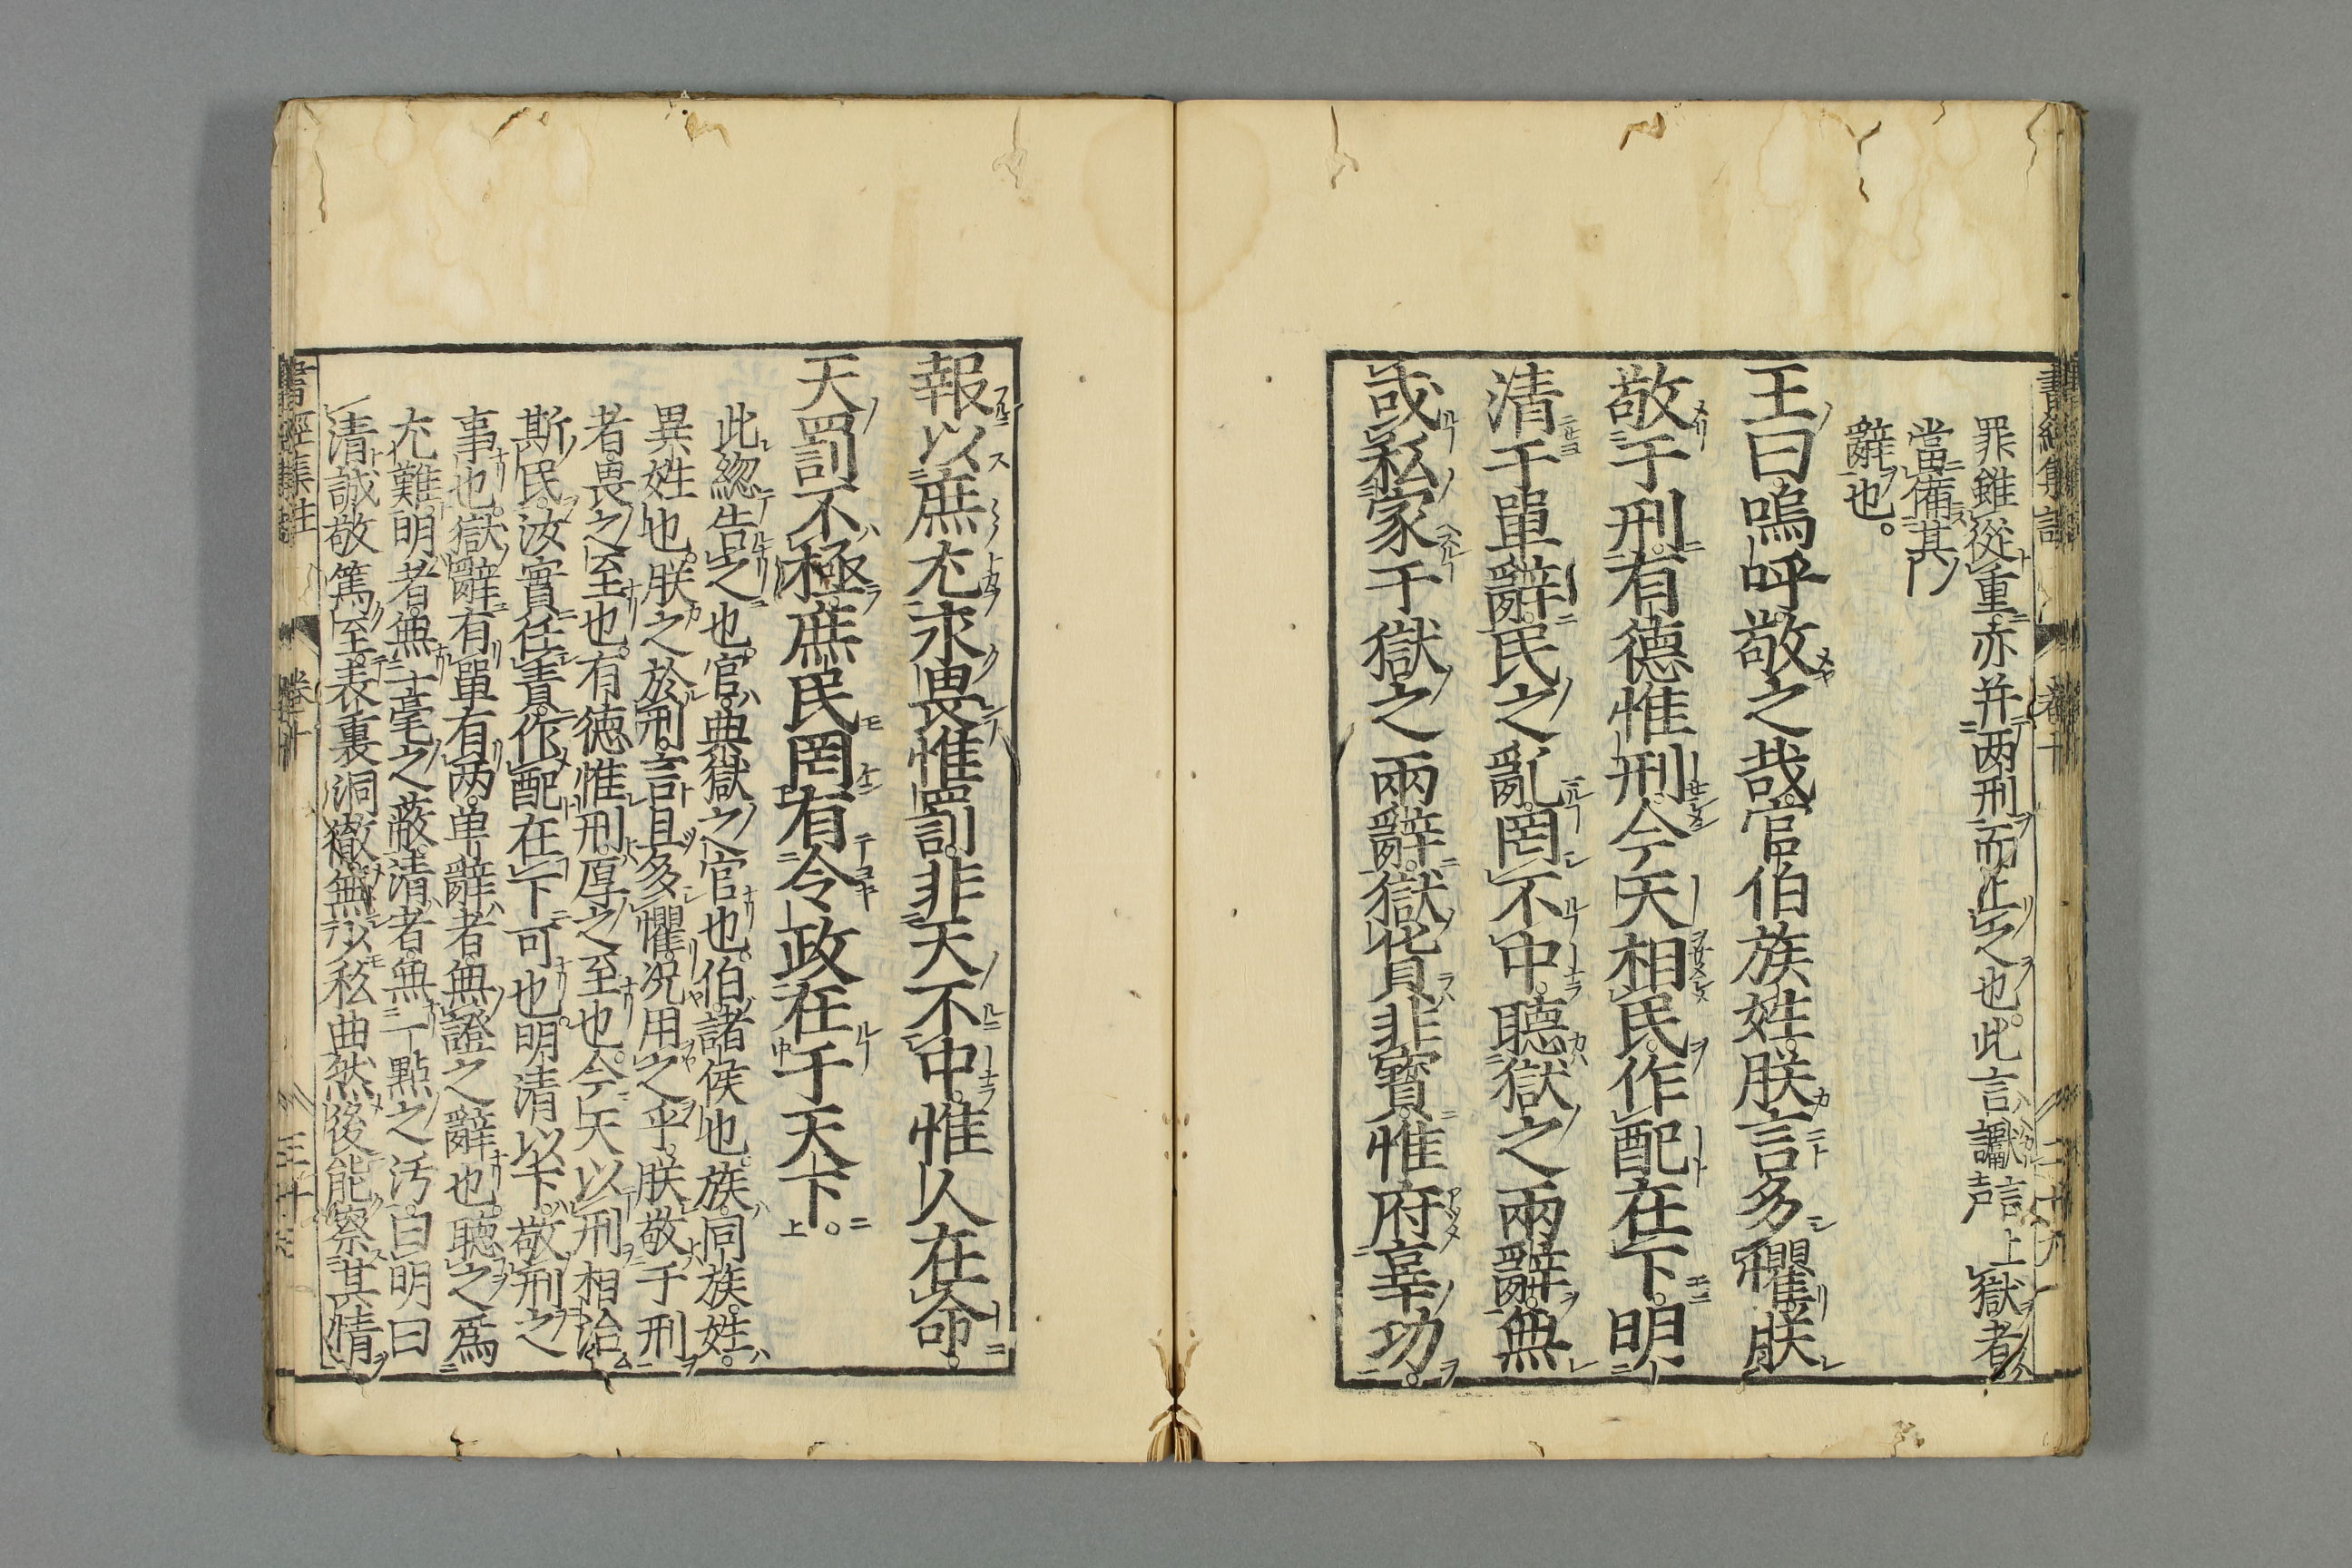 罪雖從重。亦并两刑而上之也。此言讞言声上獄者
當備其
辭也。
王曰。嗚呼。敬之哉。官伯族姓。朕言多懼。朕
敬于刑。有德惟刑。今天相民。作配在下。明
清于單辭。民之亂。罔不中。聽獄之兩辭。無
或私家于獄之兩辭。獄貨非寶。惟府辜功。
報以庶尤。永畏惟罰。非天不中。惟人在命。
天罰不極。庶民罔有令政在于天下。
此緫告之也。官。典獄之官也。伯。諸侯也。族。同族。姓。
異姓也。朕之於刑。言且多懼。況用之乎。朕敬于刑
者。畏之至也。有德惟刑。厚之至也。今天以刑相治
斯民。汝實任責。作配在下可也。明清以下。敬刑之
事也。獄辭有單有两。单辭者。無證之辭也。聽之爲
尤難。明者。無一毫之蔽。清者。無一點之汚。曰明曰
清。誠敬篤至。表裏洞徹。無少私曲。然後能察其情
書經集註
卷十